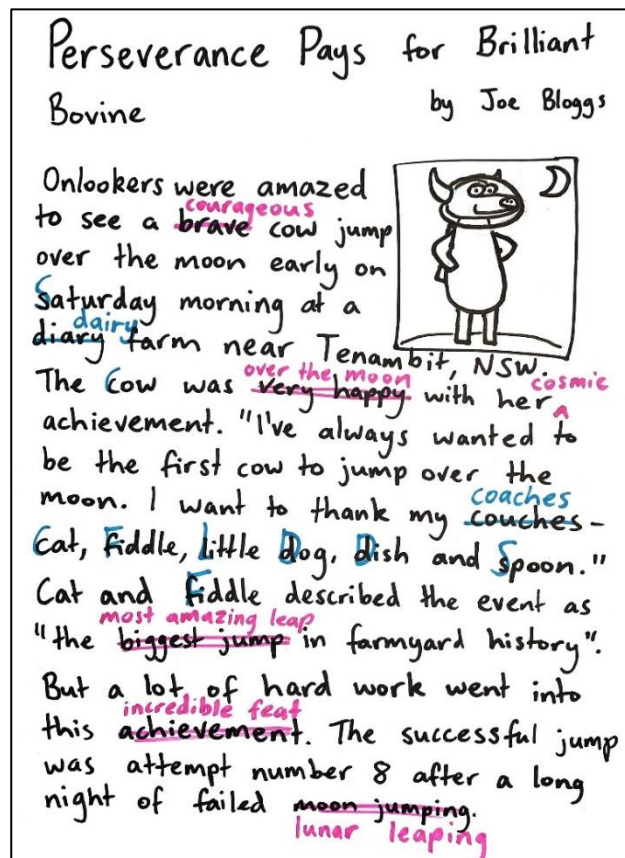 Perseverance Pays for Brilliant
Bovine by Joe Bloggs
Onlookers were amazed
courageous
to see a brave cow jump
over the moon early on
Saturday morning at a
dairy
diary farm near Tenambit, NSW.
over the moon cosmic
The Cow was very happy with her ^
achievement. "I've always wanted to
be the first cow to jump over the
moon. I want to thank my couches -
coaches
Cat, Fiddle, Little Dog, Dish and Spoon."
Cat and Fiddle described the event as
most amazing leap
"the biggest jump in farmyard history".
But a lot of hard work went into
incredible feat
this achievement. The successful jump
was attempt number 8 after a long
night of failed moon jumping.
lunar leaping